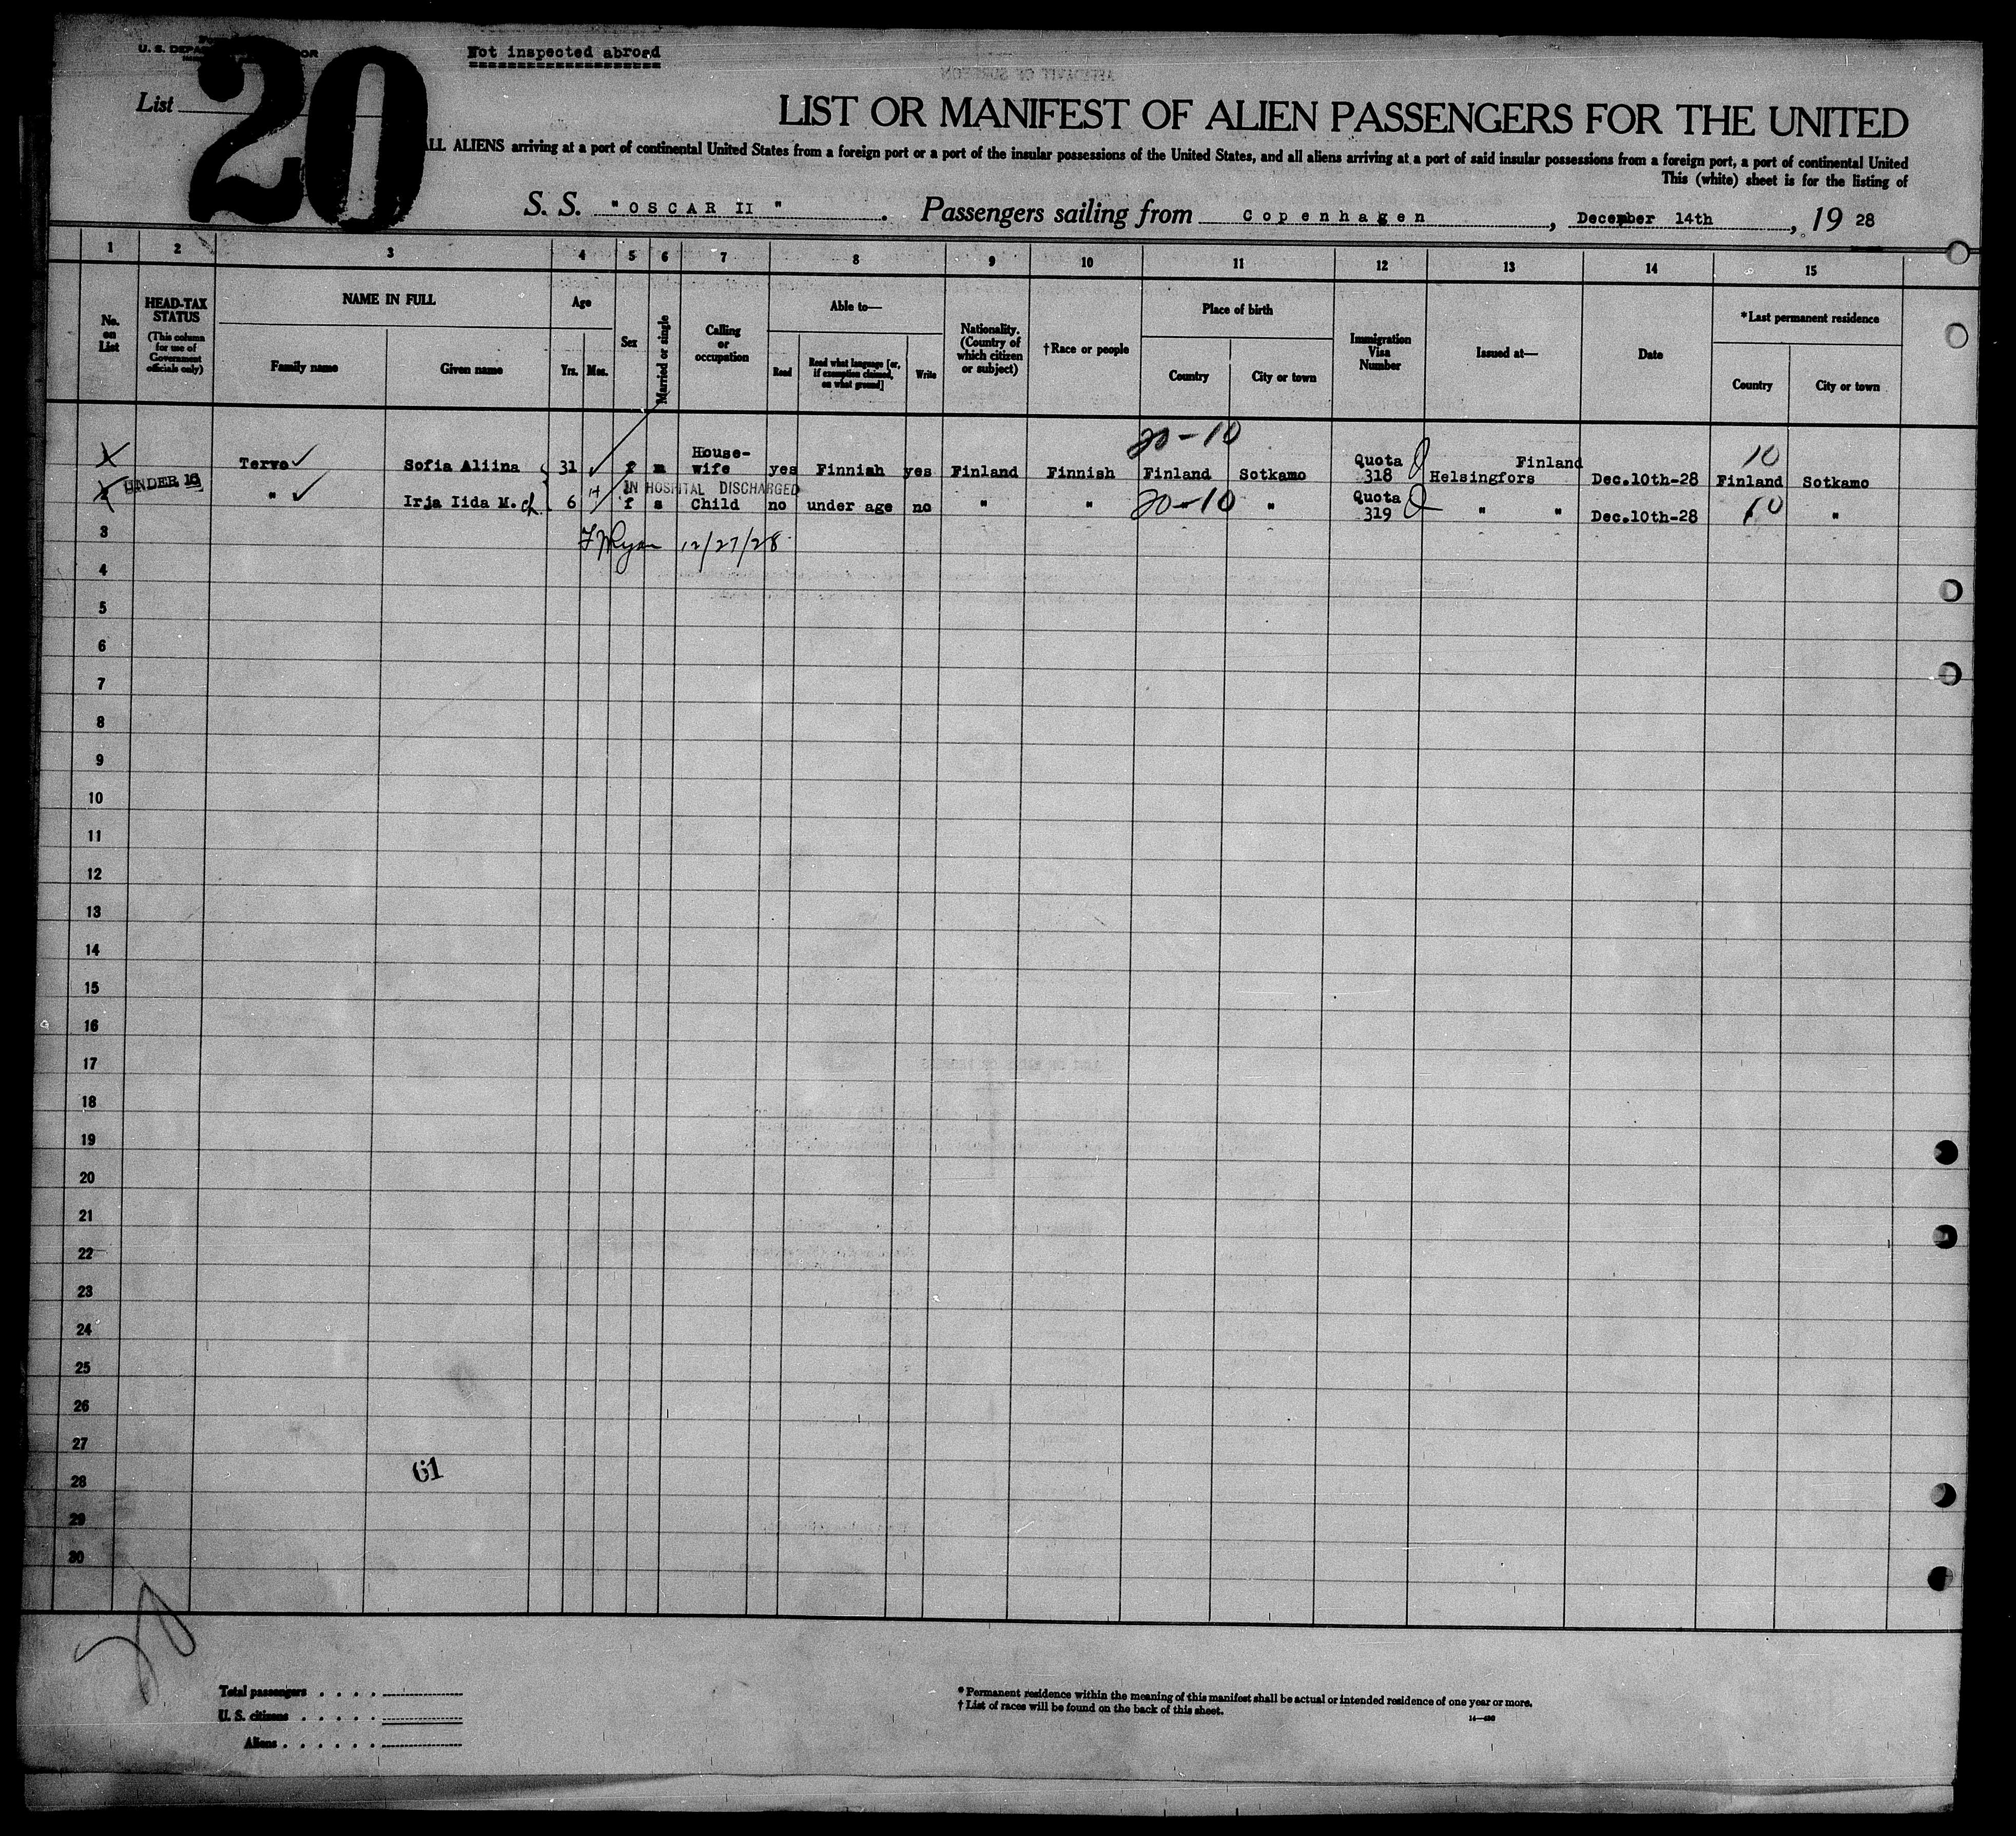 U. S. DEPA
Not inspected abroad
AFFIDAVIT OF SURGEON
List 20
LIST OR MANIFEST OF ALIEN PASSENGERS FOR THE UNITED
ALL ALIENS arriving at a port of continental United States from a foreign port or a port of the insular possessions of the United States, and all aliens arriving at a port of said insular possessions from a foreign port, a port of continental United
This (white) sheet is for the listing of
S. S. "OSCAR II" . Passengers sailing from Copenhagen, December 14th, 1928
1 2 3 4 5 6 7 8 9 10 11 12 13 14 15
No. on List
HEAD-TAX STATUS (This column for use of Government officials only)
NAME IN FULL
Family name Given name
Age
Yrs. Mos.
Sex
Married or single
Calling or occupation
Able to—
Read Read what language [or, if exemption claimed, on what ground] Write
Nationality. (Country of which citizen or subject)
†Race or people
Place of birth
Country City or town
Immigration Visa Number
Issued at—
Date
*Last permanent residence
Country City or town
20-10
Tervo Sofia Aliina 31 f m House-wife yes Finnish yes Finland Finnish Finland Sotkamo Quota 318 Finland Helsingfors Dec.10th-28 10 Finland Sotkamo
UNDER 16
IN HOSPITAL DISCHARGED
" Irja Iida M. ch 6 f s Child no under age no " " 20-10 " Quota 319 " " Dec.10th-28 10 "
3 12/27/28
4
5
6
7
8
9
10
11
12
13
14
15
16
17
18
19
20
21
22
23
24
25
26
27
61
28
29
30
Total passengers . . . .
U. S. citizens . . . . .
Aliens . . . . . .
* Permanent residence within the meaning of this manifest shall be actual or intended residence of one year or more.
† List of races will be found on the back of this sheet.